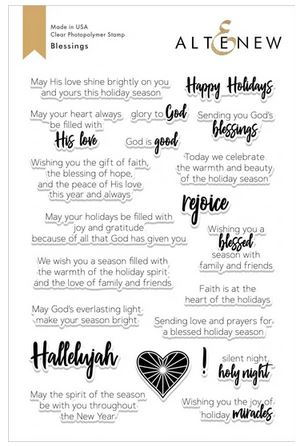 Made in USA
Clear Photopolymer Stamp
Blessings
ALTENEW
May His love shine brightly on you
and yours this holiday season
Happy Holidays
May your heart always
be filled with
His love
glory to God
God is good
Sending you God's
blessings
Wishing you the gift of faith,
the blessing of hope,
and the peace of His love
this year and always
Today we celebrate
the warmth and beauty
of the holiday season
rejoice
May your holidays be filled with
joy and gratitude
because of all that God has given you
Wishing you a
blessed
season with
family and friends
We wish you a season filled with
the warmth of the holiday spirit
and the love of family and friends
Faith is at the
heart of the holidays
May God's everlasting light
make your season bright
Sending love and prayers for
a blessed holiday season
Hallelujah
!
silent night,
holy night
May the spirit of the season
be with you throughout
the New Year
Wishing you the joy of
holiday miracles